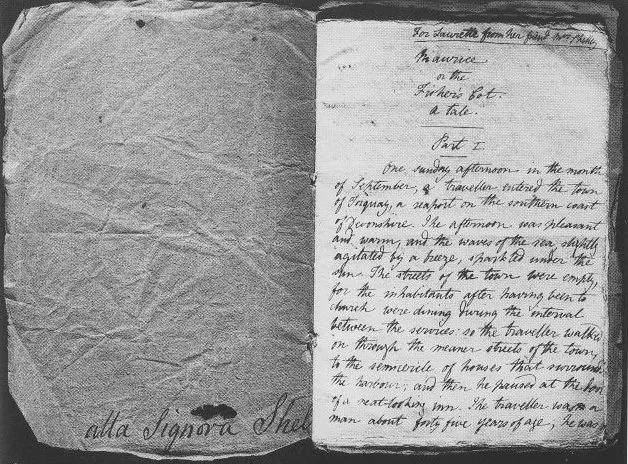 alla Signora Shel
For Laurette from her friend Mrs Shelley
Maurice
or the
Fisher's Cot.
a tale.
Part I
One sunday afternoon in the month
of September, a traveller entered the town
of Torquay, a seaport on the southern coast
of Devonshire. The afternoon was pleasant
and warm, and the waves of the sea, slightly
agitated by a breeze, sparkled under the
sun. The streets of the town were empty,
for the inhabitants after having been to
church were dining during the interval
between the services: so the traveller walked
on through the meaner streets of the town,
to the semicircle of houses that surround
the harbour; and then he paused at the door
of a neat-looking inn. The traveller was a
man about forty five years of age; he was